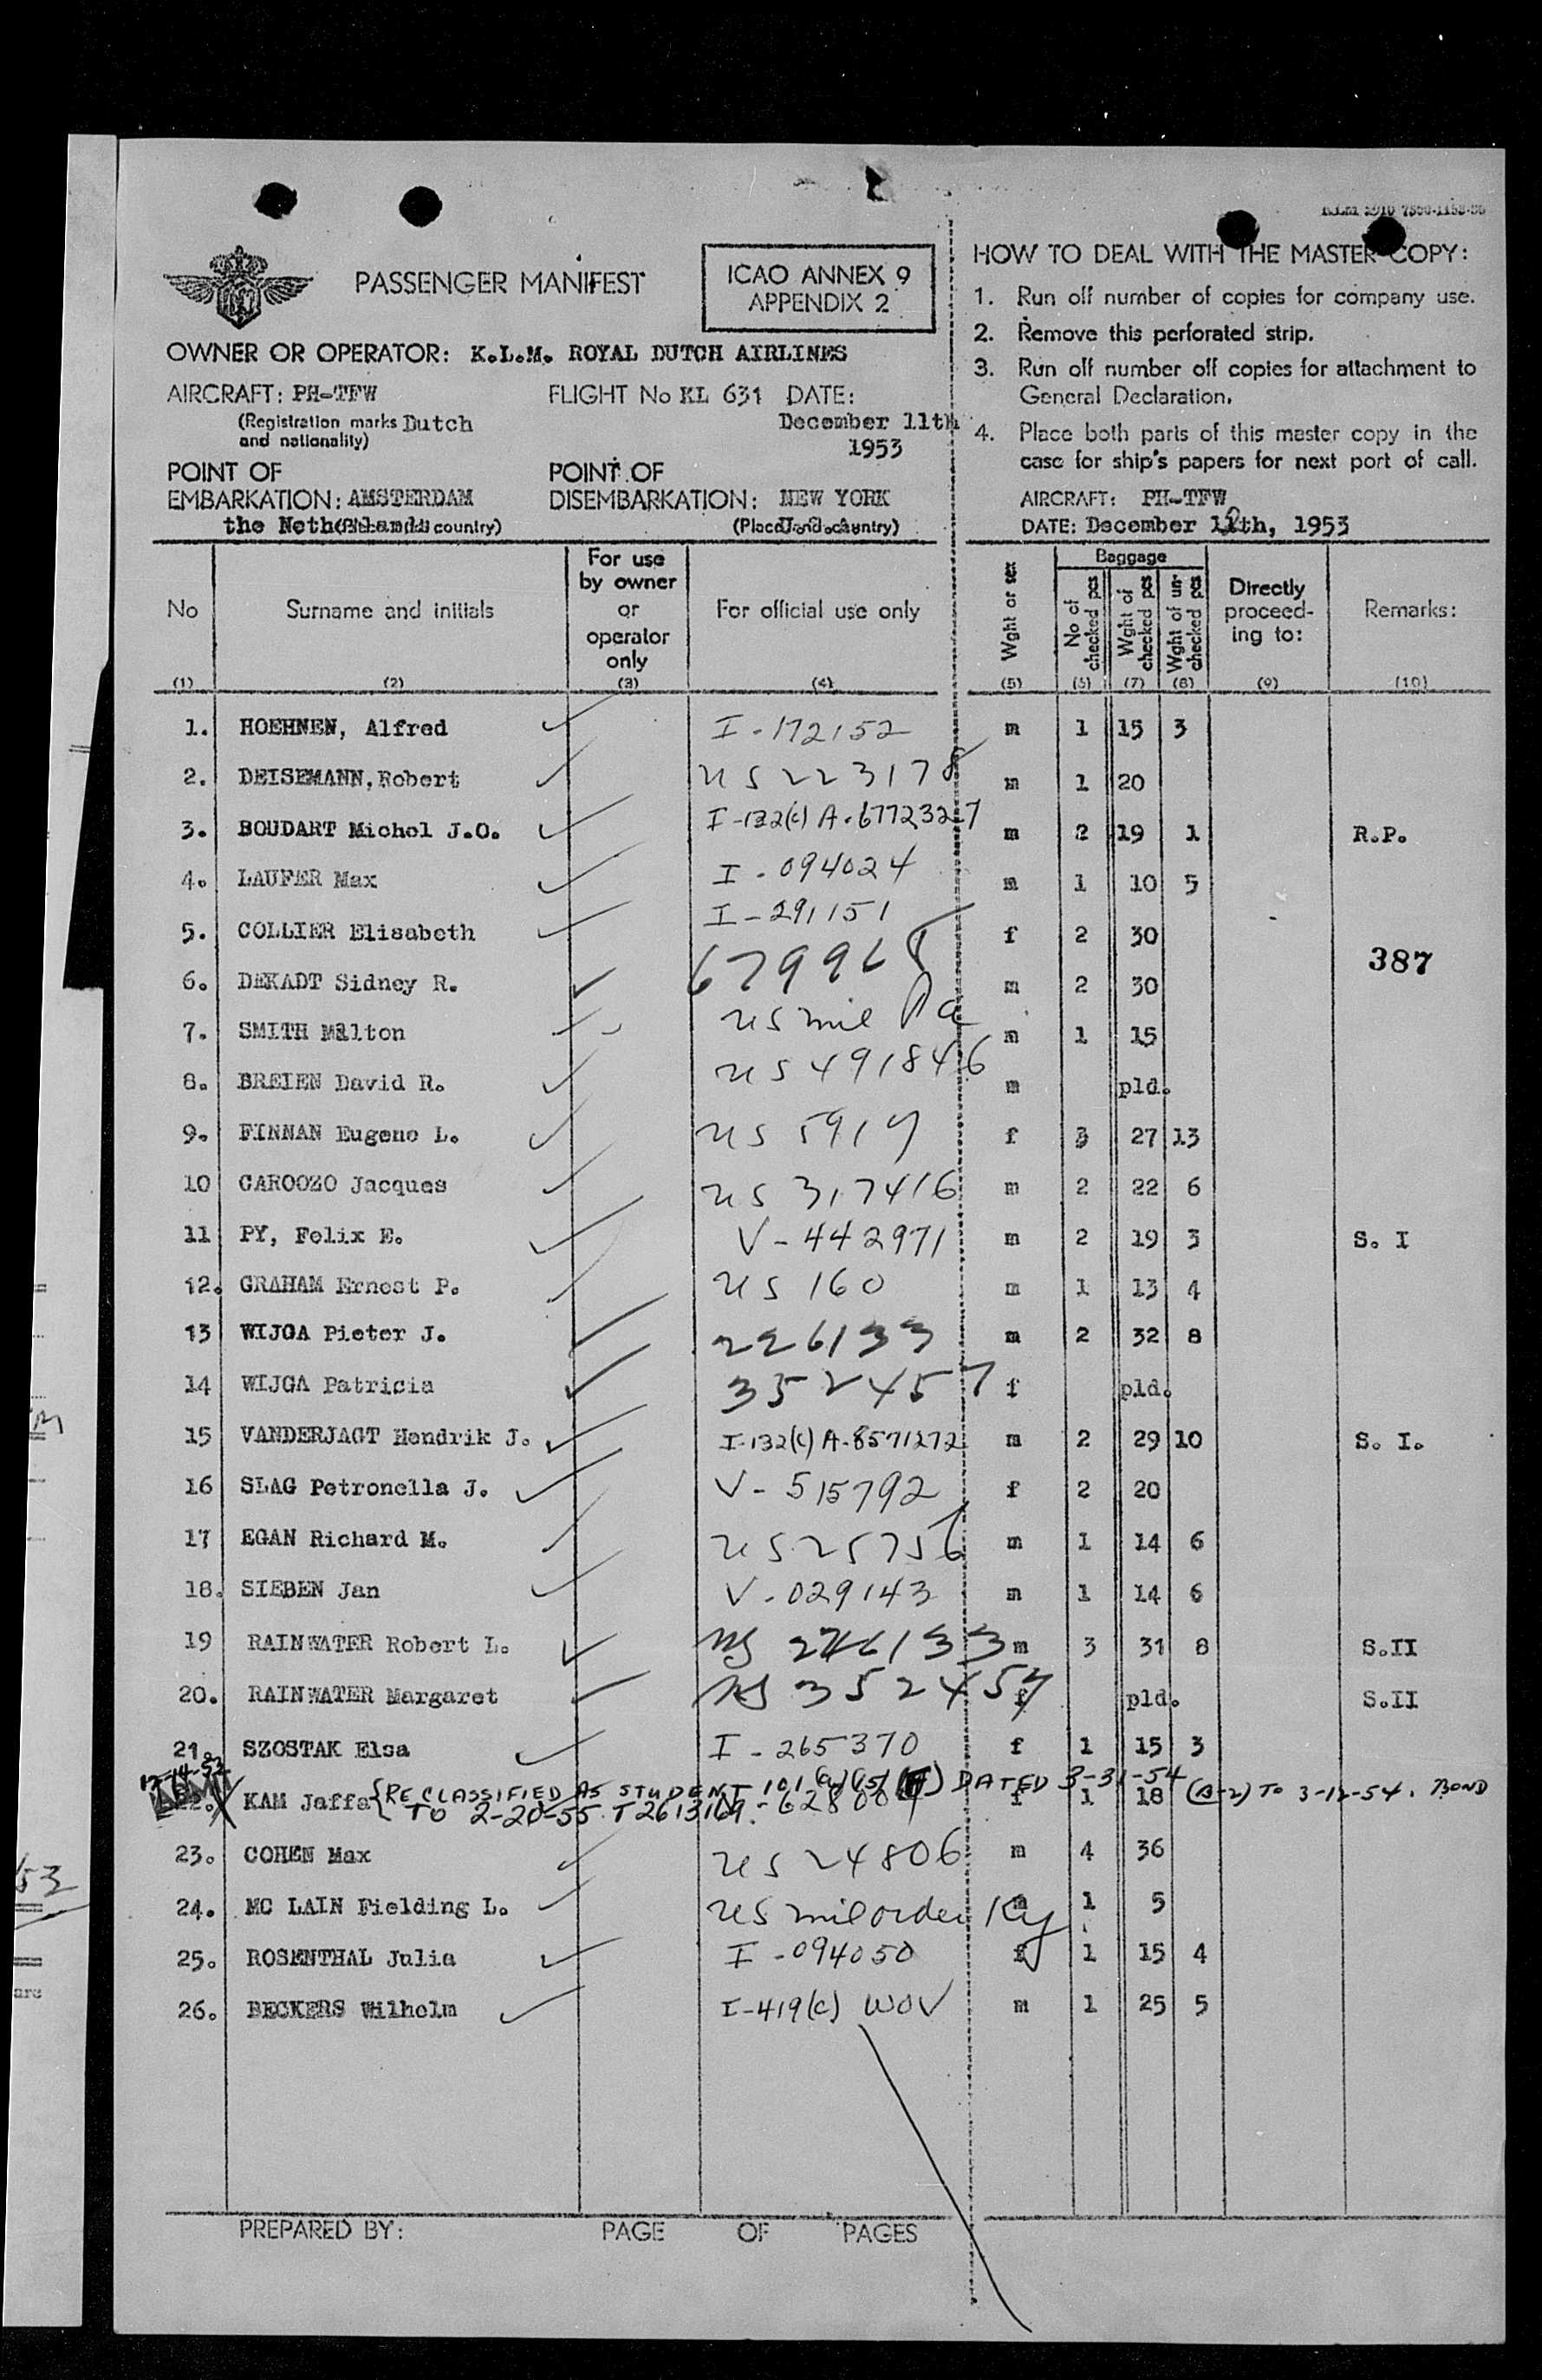 PASSENGER MANIFEST
ICAO ANNEX 9
APPENDIX 2
OWNER OR OPERATOR: K.L.M. ROYAL DUTCH AIRLINES
AIRCRAFT: PH-TFW FLIGHT No KL 631 DATE:
(Registration marks Dutch December 11th
and nationality) 1953
POINT OF POINT OF
EMBARKATION: AMSTERDAM DISEMBARKATION: NEW YORK
the Netherlands country) (Place and country)
HOW TO DEAL WITH THE MASTER COPY:
1. Run off number of copies for company use.
2. Remove this perforated strip.
3. Run off number off copies for attachment to
General Declaration.
4. Place both parts of this master copy in the
case for ship's papers for next port of call.
AIRCRAFT: PH-TFW
DATE: December 12th, 1953
No Surname and initials For use by owner or operator only For official use only Wght or sex Baggage No of checked pcs Wght of checked pcs Wght of un-checked pcs Directly proceed-ing to: Remarks:
(1) (2) (3) (4) (5) (6) (7) (8) (9) (10)
1. HOEHNEN, Alfred I-172152 m 1 15 3
2. DEISEMANN, Robert US 223178 m 1 20
3. BOUDART Michel J.O. I-132(c) A-6772327 m 2 19 1 R.P.
4. LAUFER Max I-094024 m 1 10 5
5. COLLIER Elisabeth I-291151 f 2 30
387
6. DEKADT Sidney R. 679968 m 2 30
7. SMITH Milton US mil m 1 15
8. BREIEN David R. US 491846 m pld.
9. FINNAN Eugene L. US 5919 f 3 27 13
10 CAROOZO Jacques US 317416 m 2 22 6
11 PY, Felix E. V-442971 m 2 19 3 S. I
12. GRAHAM Ernest P. US 160 m 1 13 4
13 WIJGA Pieter J. 226133 m 2 32 8
14 WIJGA Patricia 352457 f pld.
15 VANDERJAGT Hendrik J. I-132(c) A-8571272 m 2 29 10 S. I.
16 SLAG Petronella J. V-515792 f 2 20
17 EGAN Richard M. US 25756 m 1 14 6
18. SIEBEN Jan V-029143 m 1 14 6
19 RAINWATER Robert L. US 226133 m 3 31 8 S.II
20. RAINWATER Margaret US 352457 f pld. S.II
21. SZOSTAK Elsa I-265370 f 1 15 3
22. KAM Jaffa {RECLASSIFIED AS STUDENT 101(a)(15)(F) DATED 3-31-54 f 1 18 (B-2) TO 3-12-54. BOND
TO 2-20-55 T2613169.
23. COHEN Max US 24806 m 4 36
24. MC LAIN Fielding L. US mil order 1 5
25. ROSENTHAL Julia I-094050 f 1 15 4
26. BECKERS Wilhelm I-419(c) WOV m 1 25 5
PREPARED BY: PAGE OF PAGES